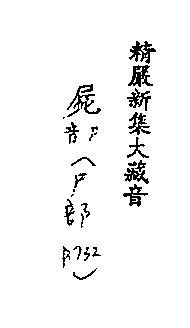 精嚴新集大藏音
音尸（尸部732）